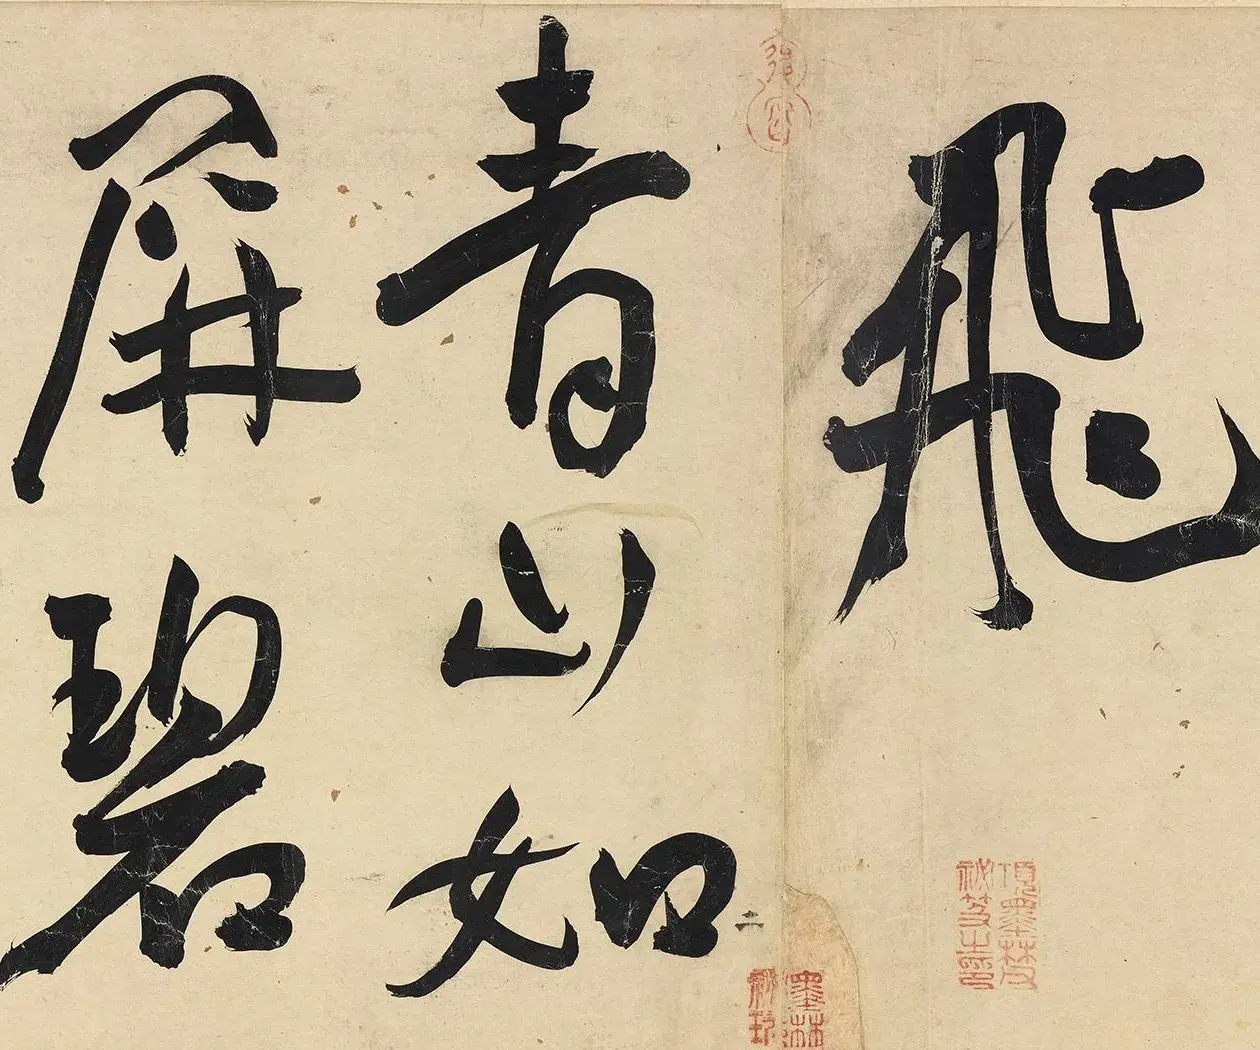 飛
青山如
屏碧
退密
項墨林父
祕笈之印
墨林
祕玩